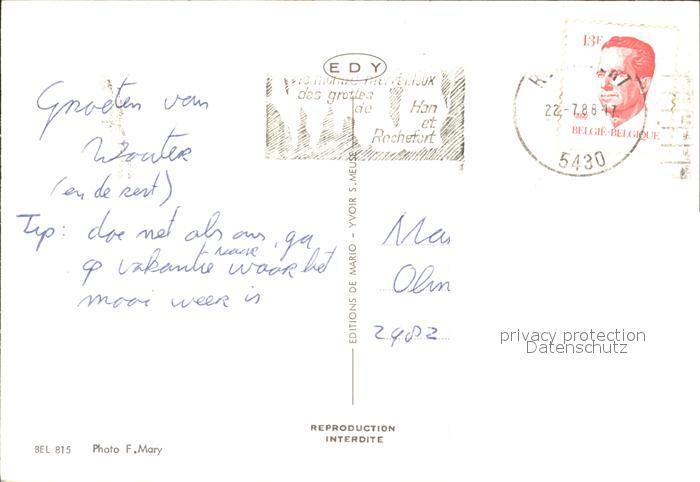 EDY
des grottes
de Han
et
Rochefort
13F
22-7.88-17
BELGIË-BELGIQUE
5430
Groeten van
Wouter
(en de rest)
Tip: doe net als ons, ga
op vakantie naar waar het
mooi weer is
EDITIONS DE MARIO - YVOIR S. MEUSE
Mas
Olm
2402
privacy protection
Datenschutz
REPRODUCTION
INTERDITE
BEL 815 Photo F. Mary